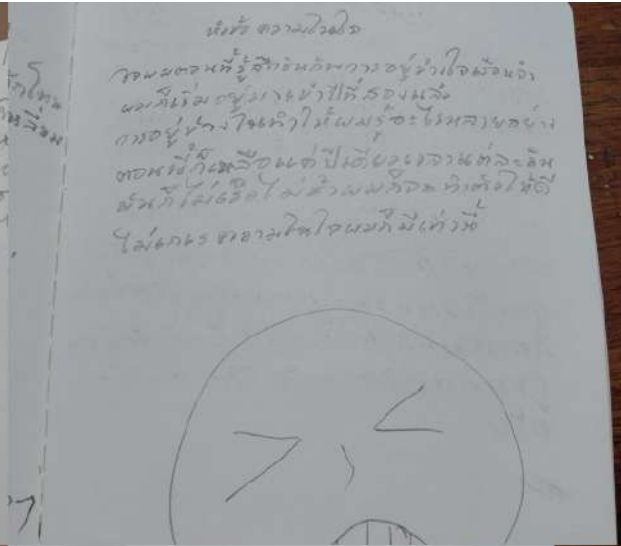 หัวข้อ ความในใจ
ของผมตอนที่รู้สึกชินกับการอยู่ข้างในเรือนจำ
ผมก็เริ่มอยู่มาเข้าปีที่สองแล้ว
การอยู่ข้างในทำให้ผมรู้อะไรหลายอย่าง
ตอนนี้ก็เหลือแค่ปีเดียวเวลาแต่ละวัน
มันก็ไม่เร็วไม่ช้าผมก็จะทำตัวให้ดี
ไม่เกเร ความในใจผมก็มีเท่านี้